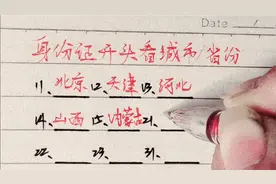 Date /
身份证开头看城市/省份
11、北京 12、天津 13、河北
14、山西 15、内蒙古 21、
22、 23、 31、